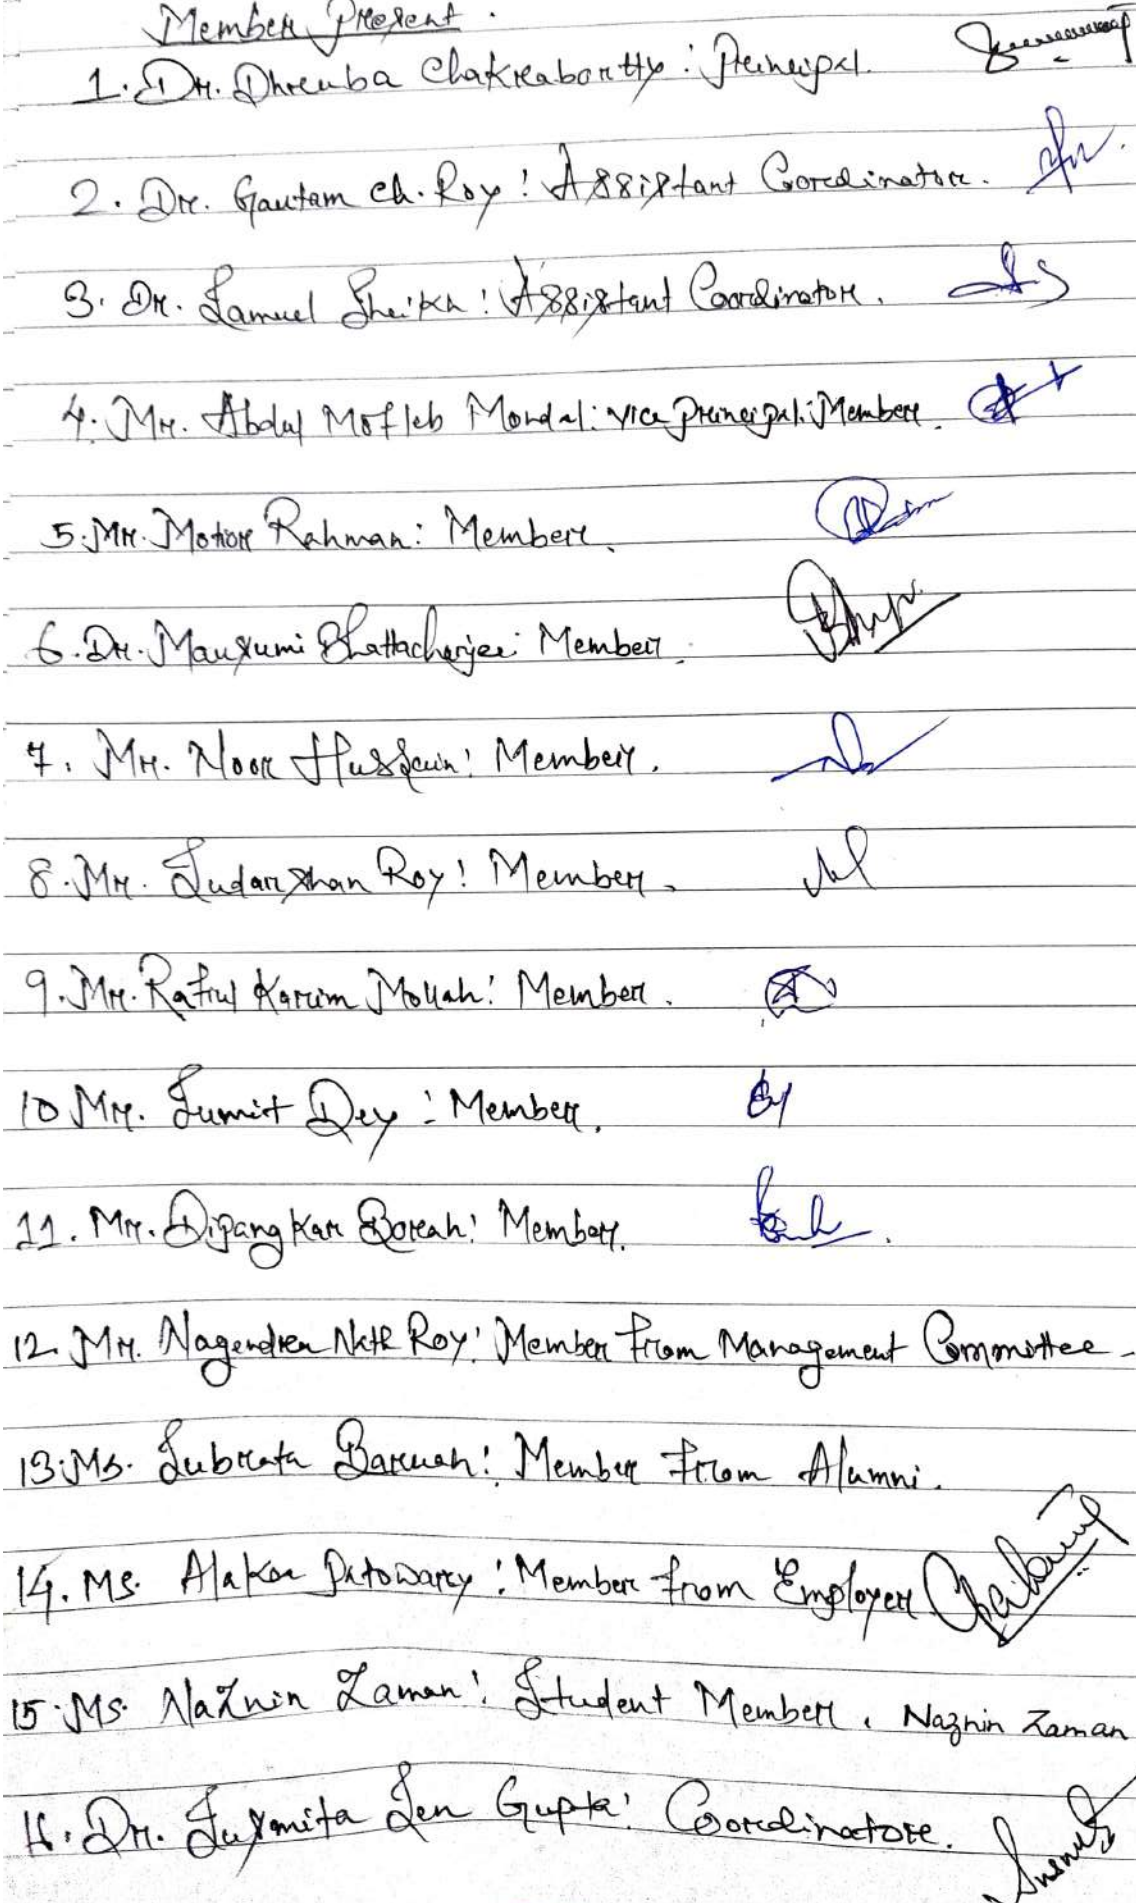 Member Present.
1. Dr. Dhruba Chakraborty : Principal.
2. Dr. Gautam Ch. Roy : Assistant Coordinator.
3. Dr. Samuel Sheikh : Assistant Coordinator.
4. Mr. Abdul Motleb Mondal : Vice Principal : Member.
5. Mr. Motior Rahman : Member.
6. Dr. Mausumi Bhattacharjee : Member.
7. Mr. Noor Hussain : Member.
8. Mr. Sudarshan Roy : Member.
9. Mr. Rafiul Karim Mollah : Member.
10 Mr. Sumit Dey : Member.
11. Mr. Dipangkar Borah : Member.
12. Mr. Nagendra Nath Roy : Member from Management Committee -
13. Ms. Subrata Baruah : Member From Alumni.
14. Ms. Alaka Patowary : Member from Employer
15. Ms. Naznin Zaman : Student Member. Naznin Zaman
16. Dr. Susmita Sen Gupta : Coordinator.